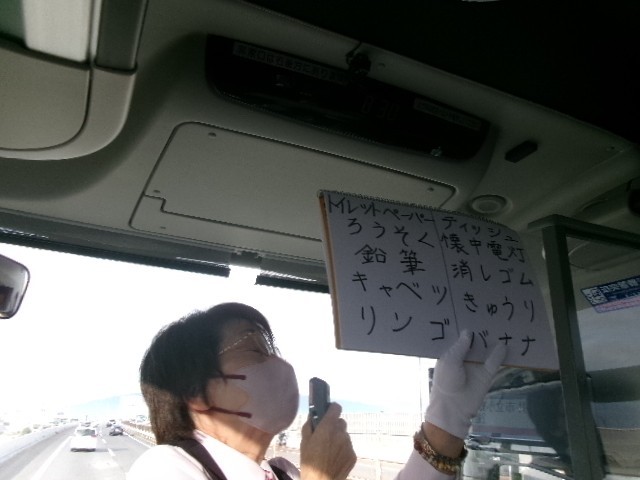 トイレットペーパー ティッシュ
ろうそく 懐中電灯
鉛筆 消しゴム
キャベツ きゅうり
リンゴ バナナ